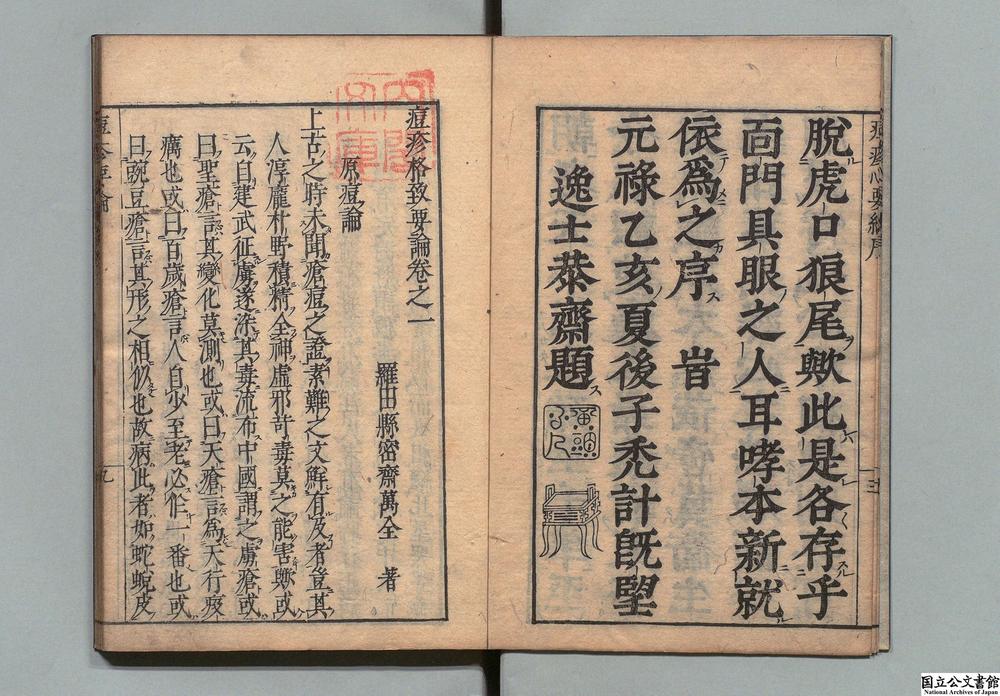 脫虎口狼尾歟此是各存乎
面門具眼之人耳哮本新就
依爲之序 旹
元祿乙亥夏後子禿計旣望
逸士恭齋題
痘疹格致要論卷之一
羅田縣密齋萬全 著
原痘論
上古之時未聞瘡痘之證素難之文鮮有及者豈其
人淳龐朴野積精全神虛邪苛毒莫之能害歟或
云自建武征虜遂染其毒流布中國謂之虜瘡或
曰聖瘡言其變化莫測也或曰天瘡言爲天行疫
癘也或曰百歲瘡言人自少至老必作一番也或
曰豌豆瘡言其形之相似也故病此者如蛇蛻皮
內閣文庫
国立公文書館
National Archives of Japan